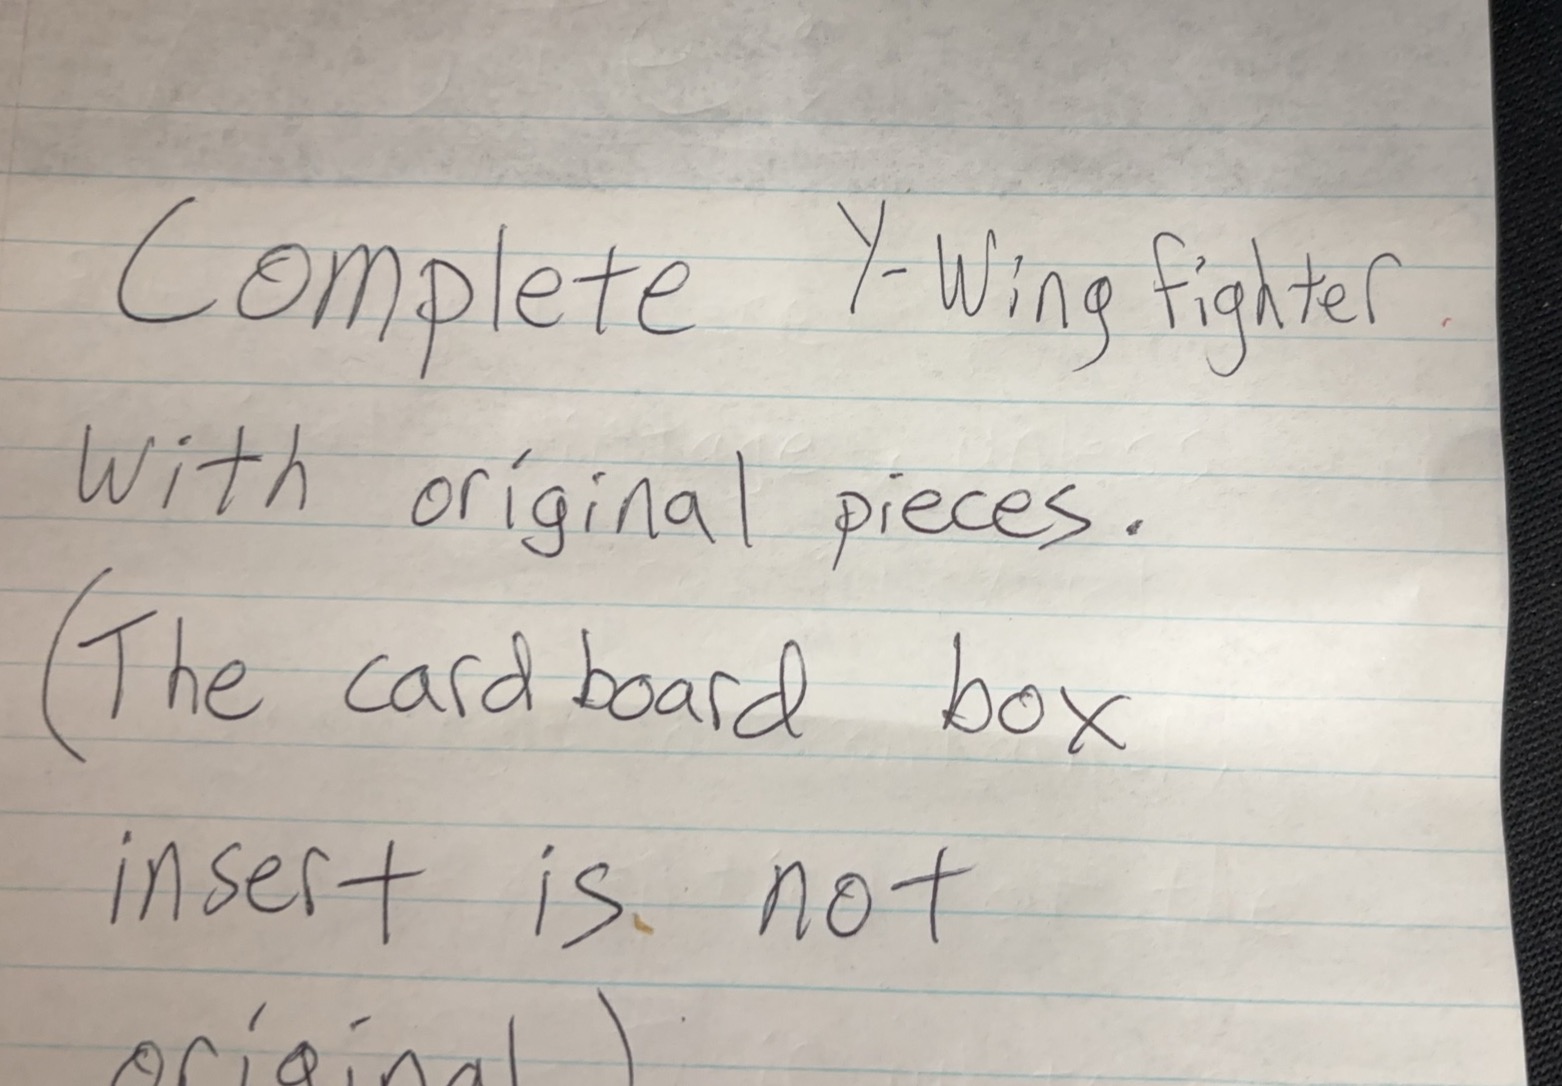 Complete Y-Wing fighter
With original pieces.
(The cardboard box
insert is not
original)